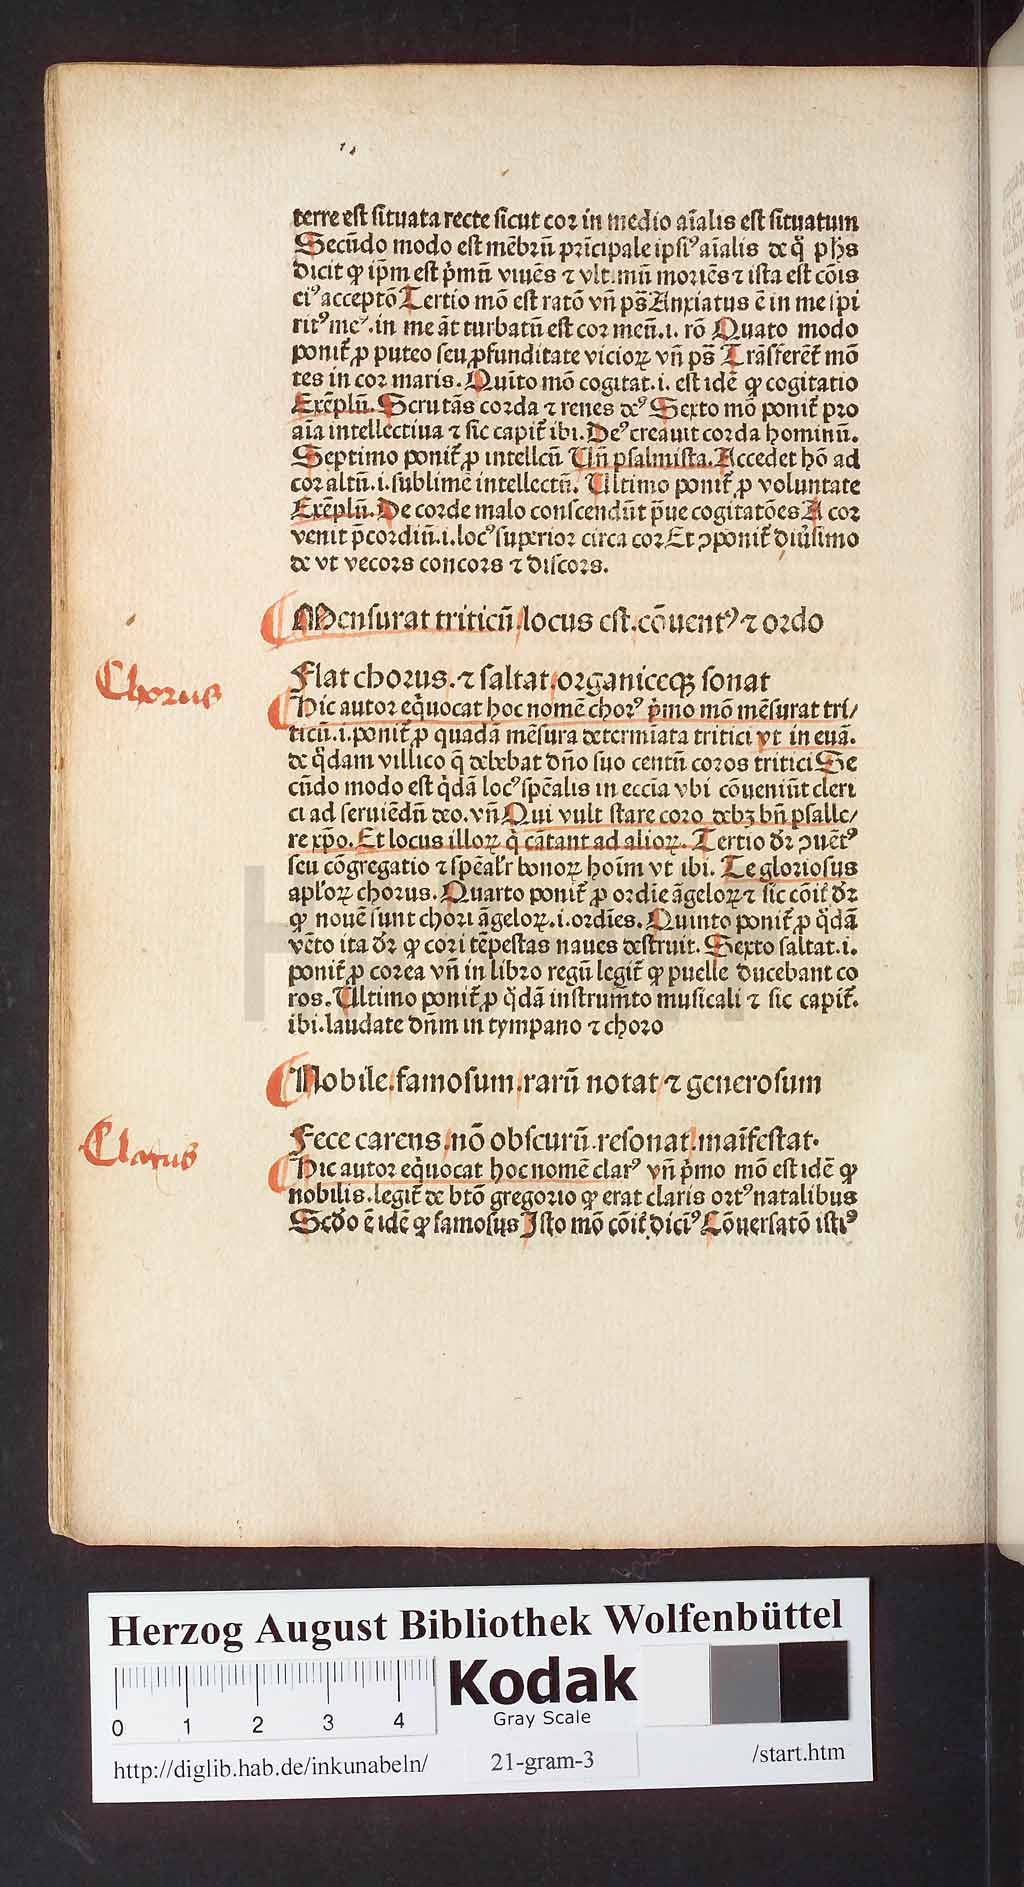 terre est situata recte sicut cor in medio aīalis est situatum
Secūdo modo est mēbrū prīcipale ipsiꝰ aīalis de q̊ phs
dicit ꝙ ip̄m est p̄mū viuēs ⁊ vltimū moriēs ⁊ ista est cōis
eiꝰ acceptō Tertio mō est ratō vn̄ ps̄ Anxiatus ē in me spi
ritꝰ meꝰ. in me āt turbatū est cor meū .i. rō Quato modo
ponit̄ ꝓ puteo seu ꝓfunditate vicioꝝ vn̄ ps̄ Trāsferēt̄ mō
tes in cor maris. Quīto mō cogitat .i. est idē ꝙ cogitatio
Exēplū. Scrutās corda ⁊ renes deꝰ Sexto mō ponit̄ pro
aīa intellectiua ⁊ sic capit̄ ibi. Deꝰ creauit corda hominū.
Septimo ponit̄ ꝓ intellcū Un̄ psalmista. Accedet hō ad
cor altū .i. sublimē intellectū. Ultimo ponit̄ ꝓ voluntate
Exēplū. De corde malo conscendūt p̄ue cogitatōes A cor
venit p̄cordiū .i. locꝰ superior circa cor Et ↄponit̄ diu̾simo
de vt vecors concors ⁊ discors.
Mensurat triticū locus est. cōuentꝰ ⁊ ordo
Chorus
Flat chorus. ⁊ saltat organiceqꝫ sonat
Hic autor eq̄uocat hoc nomē chorꝰ p̄mo mō mēsurat tri/
ticū .i. ponit̄ ꝓ quadā mēsura determīata tritici vt in euā.
de q̊dam villico q̄ debebat dn̄o suo centū coros tritici Se
cūdo modo est q̊dā locꝰ spēalis in eccīa vbi cōueniūt cleri
ci ad seruiēdū deo. vn̄ Qui vult stare coro debꝫ bn̄ psalle/
re xp̄o. Et locus illoꝝ q̇ cātant ad alioꝝ. Tertio dr̄ ↄuētꝰ
seu cōgregatio ⁊ spēalr̄ bonoꝝ hoīm vt ibi. Te gloriosus
apl̄oꝝ chorus. Quarto ponit̄ ꝓ ordīe āgeloꝝ ⁊ sic cōit̄ dr̄
ꝙ nouē sunt chori āgeloꝝ .i. ordīes. Quinto ponit̄ ꝓ q̊dā
vēto ita dr̄ ꝙ cori tēpestas naues destruit. Sexto saltat .i.
ponit̄ ꝓ corea vn̄ in libro regū legit̄ ꝙ puelle ducebant co
ros. Ultimo ponit̄ ꝓ q̊dā instrum̄to musicali ⁊ sic capit̄.
ibi. laudate dn̄m in tympano ⁊ choro
Nobile. famosum. rarū notat ⁊ generosum
Clarus
Fece carens nō obscurū. resonat. maīfestat.
Hic autor eq̄uocat hoc nomē clarꝰ vn̄ p̄mo mō est idē ꝙ
nobilis. legit̄ de btō gregorio ꝙ erat claris ortꝰ natalibus
Scd̄o ē idē ꝙ famosus Isto mō cōit̄ diciꝰ Cōuersatō istiꝰ
Herzog August Bibliothek Wolfenbüttel
Kodak
Gray Scale
0 1 2 3 4
http://diglib.hab.de/inkunabeln/ 21-gram-3 /start.htm
HAB